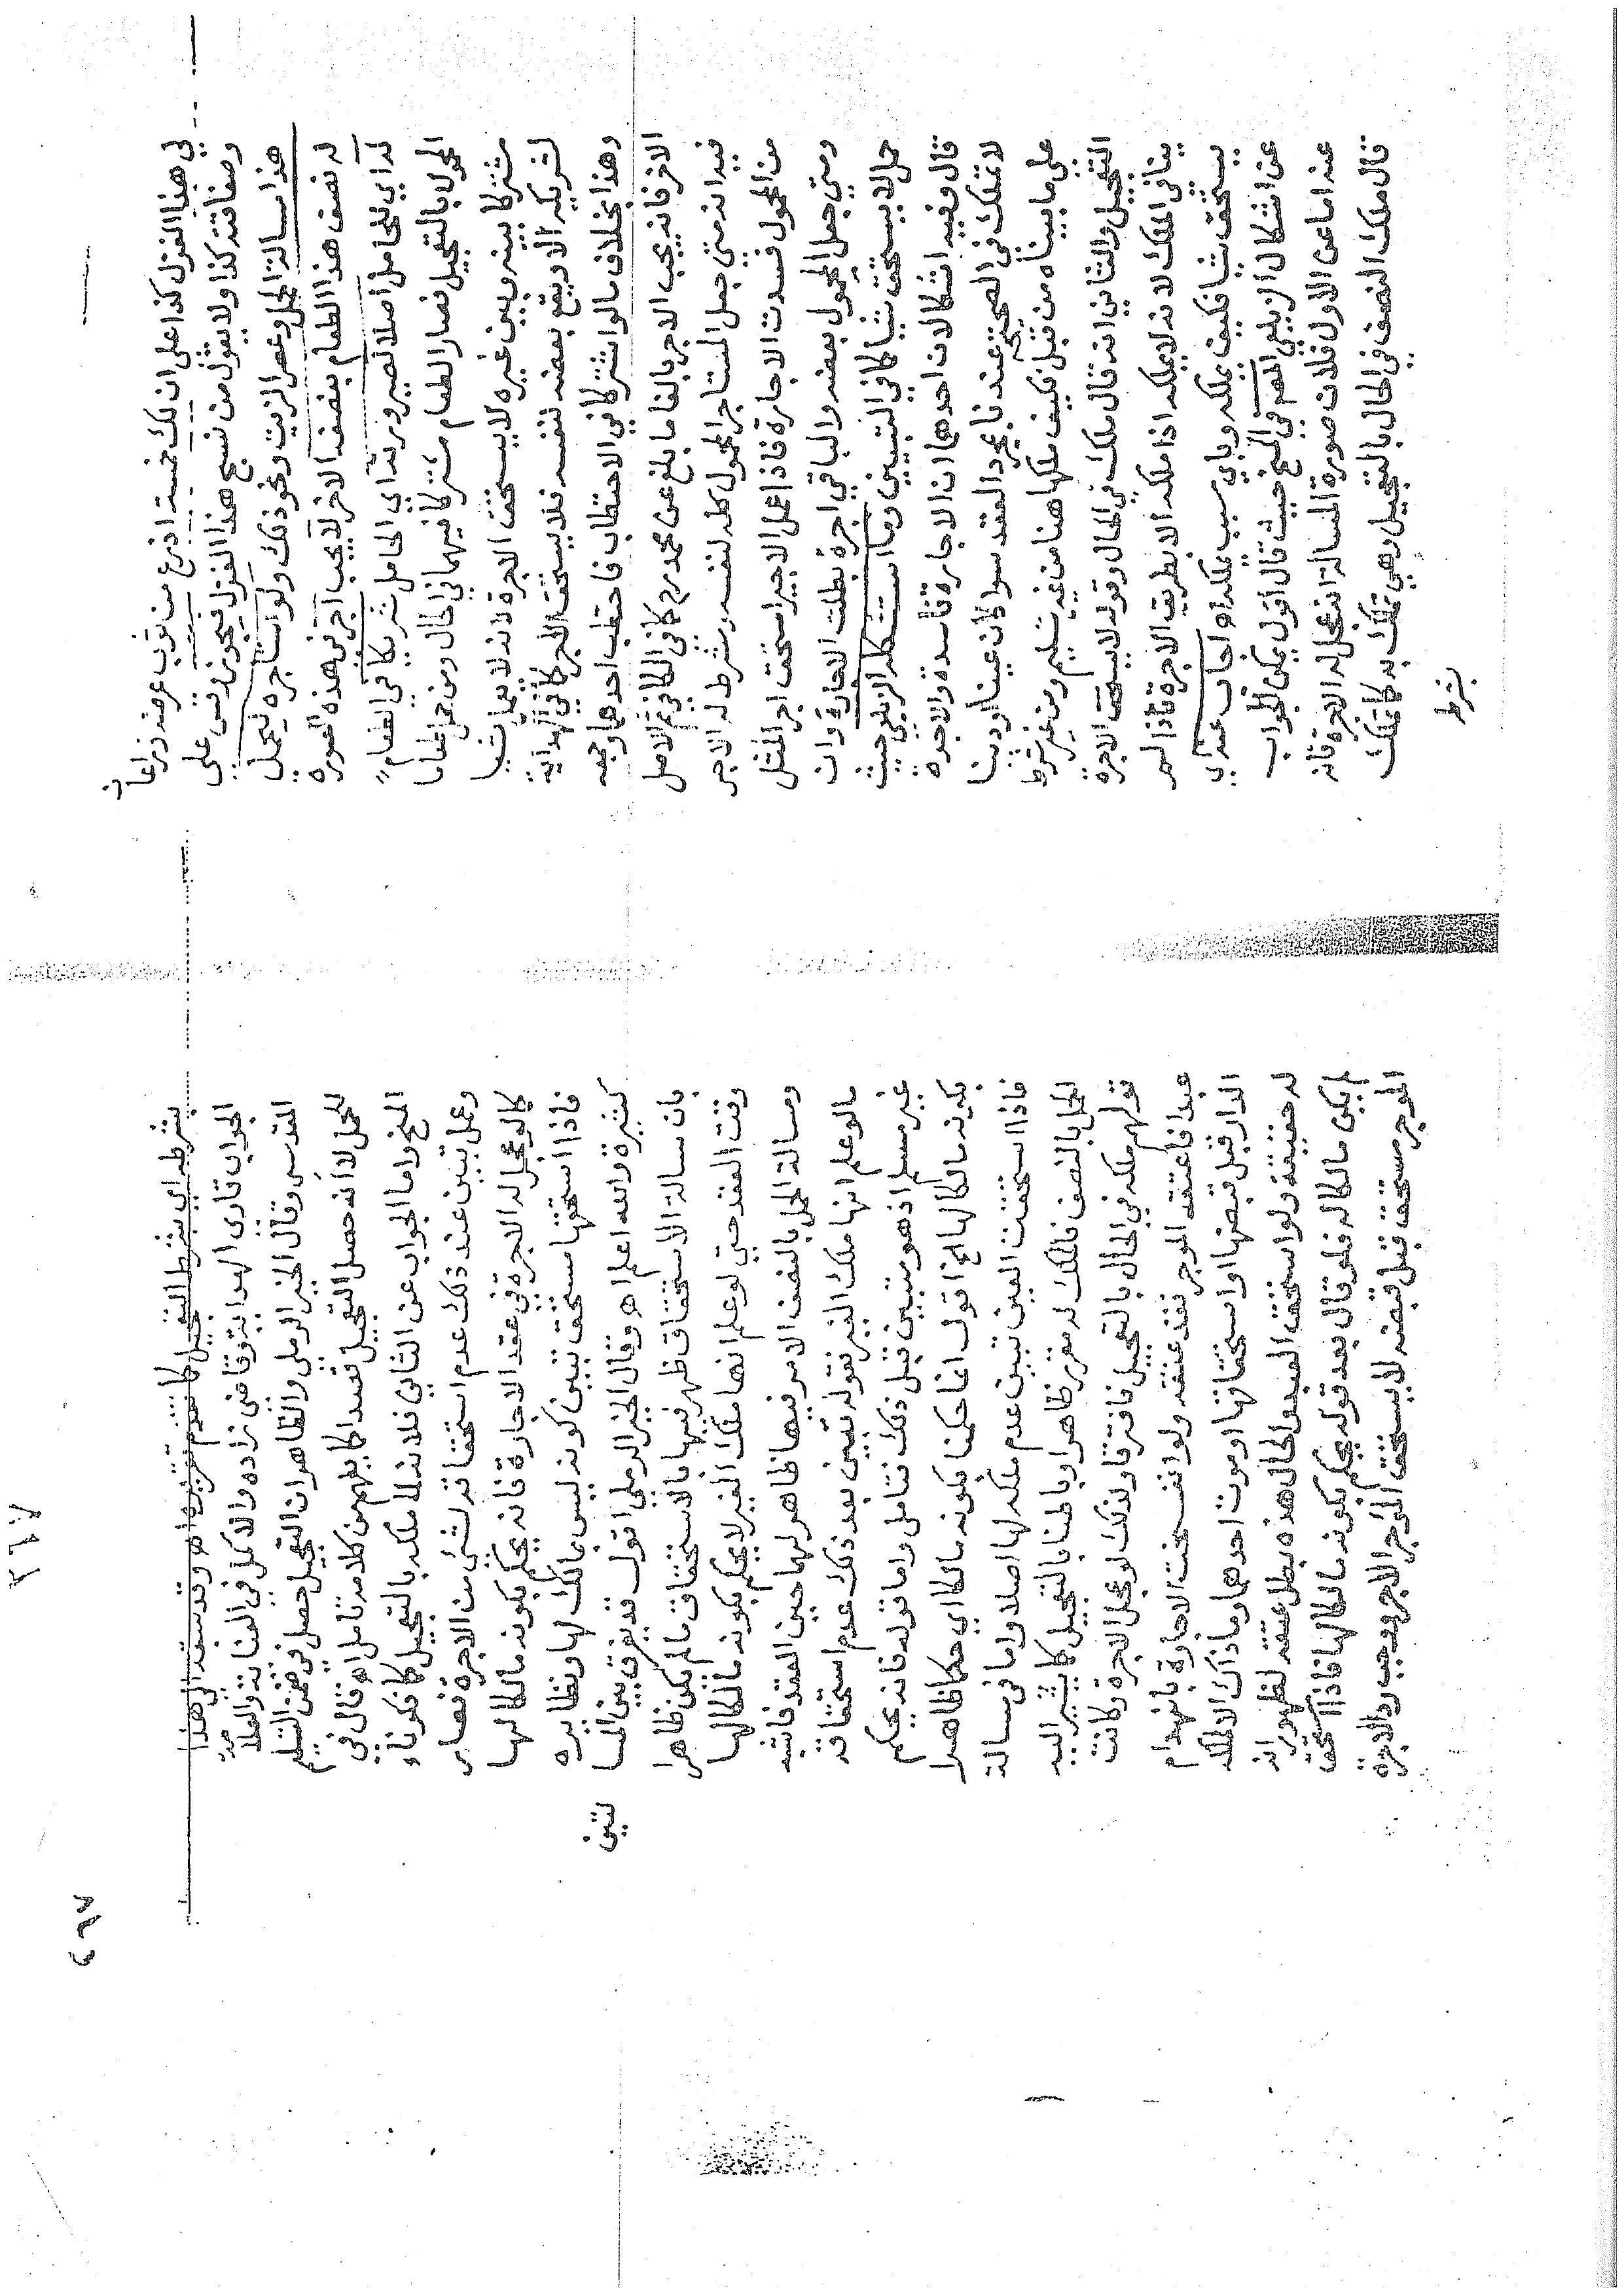 لي هذا الغزل كذا على ان لك خمسة اذرع من ثوب عرضه ذراعان
وصفاقته كذا ولا يقول من نسج هذا الغزل فيجوز وقس على
هذا مسالة الحمل وعصر الزيت ونحو ذلك ولو استاجره ليحمل
له نصف هذا الطعام بنصفه الاخر لا يجب اجر في هذه الصورة
له اي للحامل اصلا لصيرورته اي الحامل شريكا في الطعام
المحمول بالتعجيل فصار الطعام مشتركا فيهما في الحال ومن حمل طعاما
مشتركا بينه وبين غيره لا يستحق الاجرة لانه لا يعمل شيا
لشريكه الا ويقع بعضه لنفسه فلا يستحق الاجر كما في الهداية
وهذا بخلاف مالو اشتركا في الاحتطاب فاحتطب احدهما وجمعه
الاخر فانه يجب الاجر بالغا ما بلغ عن محمد رح كما في الكافي ثم الاصل
فيه انه متى جعل المستاجر المحمول كله لنفسه وشرط له الاجر
من المحمول فسدت الاجارة فاذا عمل الاجير استحق اجر المثل
ومتى جعل المحمول بعضه والباقي اجرة بطلت الاجارة وان
حمل لا يستحق شيا كما في التبيين وما استشكله الزيلعي حيث
قال وفيه اشكالان احدهما ان الاجارة فاسدة والاجرة
لا تملك في الصحيحة عندنا بمجرد العقد سوا كان عينا او دينا
على ما بيناه من قبل فكيف ملكها هنا من غير تسليم ومن غير شرط
التعجيل والثاني انه قال ملكه في الحال وقوله لا يستحق الاجرة
ينافي الملك لانه لا يملكه اذا ملكه الا بطريق الاجرة فاذا لم
يستحق شيا فكيف يملكه وباي سبب يملكه اه واجاب عنه اي
عن اشكال الزيلعي المص في المنح حيث قال اقول يمكن الجواب
عنه اما عن الاول فلان صورة المسالة انه عجل له الاجرة فانه
قال ملك النصف في الحال بالتعجيل وهي تملك به كما تملك
بشرط
٢٦٧
٢٩٧
بشرطه اي بشرط التعجيل كما تقدم تقريره اه وقد سبقه الى هذا
الجواب قارى الهداية وقاضي زاده والاكمل في العناية والعلامة
المقدسي وقال الخير الرملي والظاهر ان التعجيل حصل في ضمن التسليم
للحمل لا انه حصل التعجيل قصدا كما يفهم من كلامه تامل اه قال في
المنح واما الجواب عن الثاني فلانه لما ملكه بالتعجيل كما ذكرناه
وعمل تبين عند ذلك عدم استحقاقه لشى من الاجرة فصار
كما لو عجل له الاجرة في عقد الاجارة فانه يحكم بكونه مالكا لها
فاذا استحقها مستحق تبين كونه ليس بمالك لها ونظايره
كثيرة والله اعلم اه وقال الخير الرملي اقول قد يفرق بين المسا
لتين
بان مسالة الاستحقاق ظهر فيها بالاستحقاق ما لم يكن ظاهرا
وقت العقد حتى لو علم انها ملك الغير لا يحكم بكونه مالكا لها
ومسالة الحمل بالنصف الامر فيها ظاهر لهما حين العقد فاشبه
مالو علم انها ملك الغير فقوله تبين بعد ذلك عدم استحقاقه
غير مسلم اذ هو متبين قبل ذلك فتامل واما قوله فانه يحكم
بكونه مالكا لها الخ اقول انما حكمنا بكونه مالكا اي حكما ظاهرا
فاذا استحقت العين تبين عدم ملكه لها اصلا واما في مسالة
الحمل بالنصف فالملك له مقرر ظاهرا وباطنا بالتعجيل كما يشير اليه
قولهم ملكه في الحال بالتعجيل فافترقا ولذلك لو عجل الاجرة وكانت
عبدا فاعتقه الموجر نفذ عتقه ولو انفسخت الاجارة بانهدام
الدار قبل قبضها او استحقاقها او موت احدهما وما ذاك الا لملكه
له حقيقة ولو استحق العبد والحال هذه بطل عتقه لظهور انه
لم يكن مالكا له فلو قال بعد قوله يحكم بكونه مالكا لها فاذا استحق
الموجر مستحق قبل قبضه لا يستحق المؤجر الاجر ووجب رد الاجرة